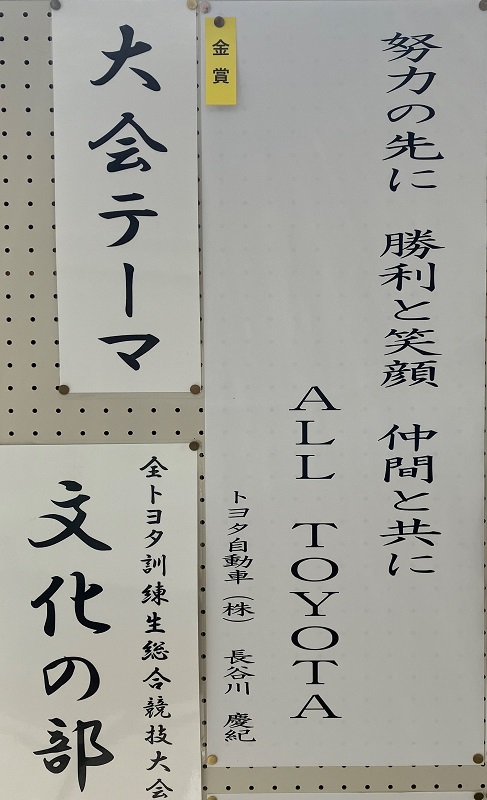 努力の先に　勝利と笑顔　仲間と共に
ALL TOYOTA
トヨタ自動車（株）　長谷川　慶紀
金賞
大会テーマ
全トヨタ訓練生総合競技大会
文化の部